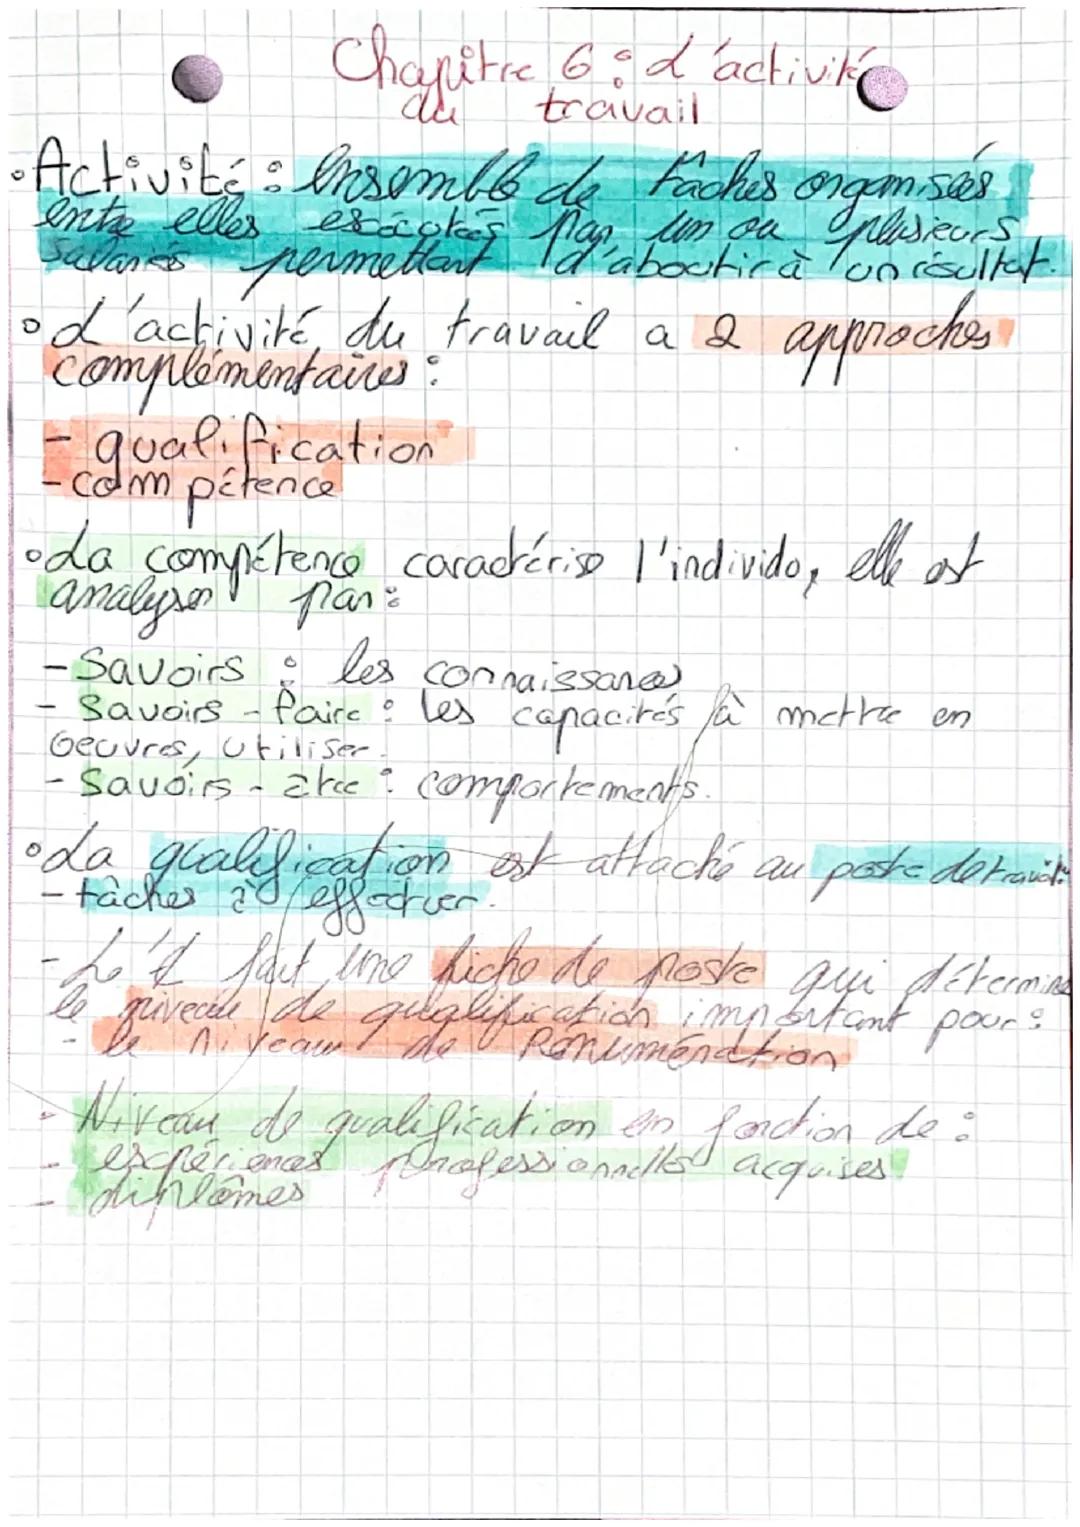 Chapitre 6 : L'activité
du travail
• Activité : Ensemble de tâches organisées
entre elles exécutées par un ou plusieurs
salariés permettant d'aboutir à un résultat.
• L'activité du travail a 2 approches
complémentaires :
- qualification
- compétence
• La compétence caractérise l'individu, elle est
analyser par :
- Savoirs : les connaissances
- Savoirs - faire : les capacités à mettre en
oeuvres, utiliser.
- Savoirs - être : comportements.
• La qualification est attaché au poste de travail :
- tâches à effectuer.
- L'É fait une fiche de poste qui détermine
le niveau de qualification important pour :
- le niveau de Rénumération
- Niveau de qualification en fonction de :
- expériences professionnelles acquises
- diplômes